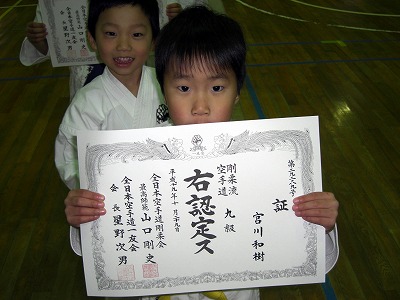 第一九六九号
証
宮川和樹
剛柔流
空手道
九級
右認定ス
平成十九年十月二十九日
全日本空手道剛柔会
最高師範 山口剛史
全日本空手道一友会
会長 星野次男